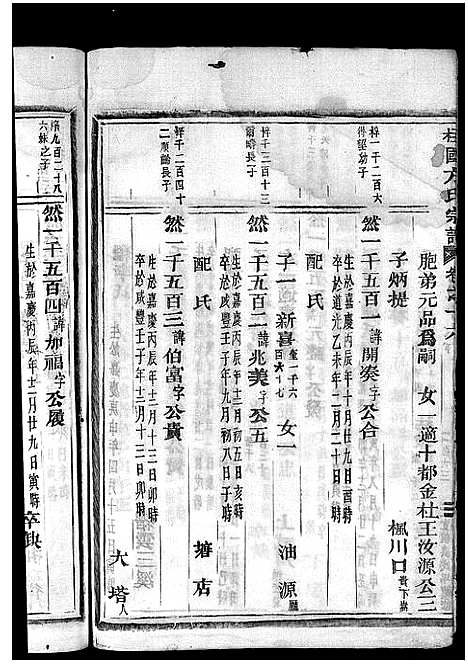 柱國方氏宗譜
胞弟元品爲嗣 女一適十都金杜王汝源公三
子炳提 楓川口
梓一千二百六
得望幼子
然一千五百一諱開奏字公合
生於嘉慶丙辰年十月廿六日
卒於道光乙未年二月
配氏
子一新喜 女一 油源
梓千二百十三
爾疇長子
然一千五百二諱兆美字公五
生於嘉慶丙辰年九月初五日亥時
卒於咸豐壬子年九月初八日子時
配氏 塘店
梓千二百四十
二順龍長子
然一千五百三諱伯富字公貴
生於嘉慶丙辰年十二月十三日卯時
卒於咸豐壬子年三月十三日卯時
配氏 大塔人
梓九百二十八
六妹之子
然一千五百四諱加福字公履
生於嘉慶丙辰年十二月廿九日寅時卒缺